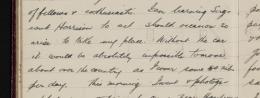 of fellows & enthusiasts. Am leaving Sergt
Harrison to act should occasion so
arise to take my place. Without the car
it would be absolutely impossible to move
about over the country as I cover some miles
per day. This morning I